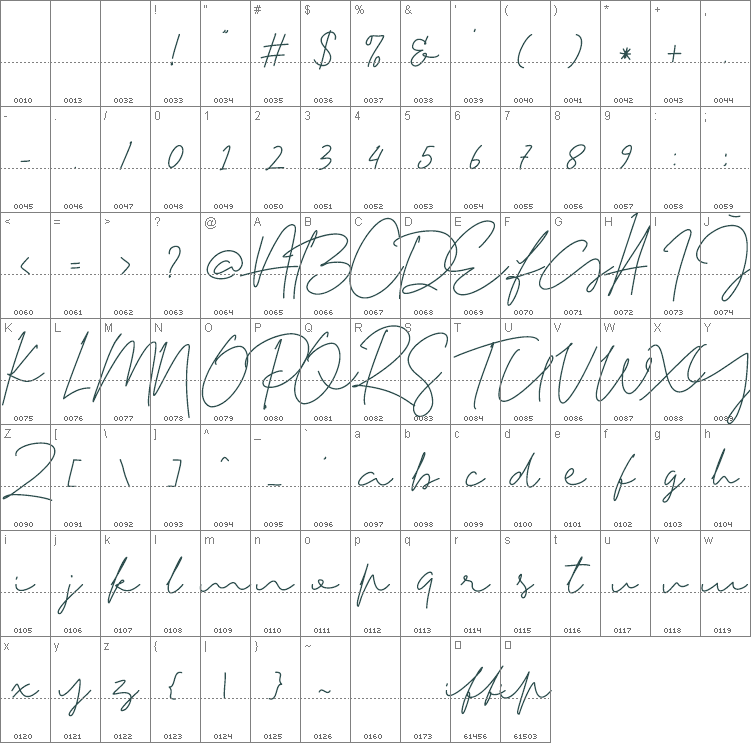 ! " # $ % & ' ( ) * + ,
! " # $ % & ' ( ) * + ,
0010 0013 0032 0033 0034 0035 0036 0037 0038 0039 0040 0041 0042 0043 0044
- . / 0 1 2 3 4 5 6 7 8 9 : ;
- . / 0 1 2 3 4 5 6 7 8 9 : ;
0045 0046 0047 0048 0049 0050 0051 0052 0053 0054 0055 0056 0057 0058 0059
< = > ? @ A B C D E F G H I J
< = > ? @ A B C D E F G H I J
0060 0061 0062 0063 0064 0065 0066 0067 0068 0069 0070 0071 0072 0073 0074
K L M N O P Q R S T U V W X Y
K L M N O P Q R S T U V W X Y
0075 0076 0077 0078 0079 0080 0081 0082 0083 0084 0085 0086 0087 0088 0089
Z [ \ ] ^ _ ` a b c d e f g h
Z [ \ ] ^ _ ` a b c d e f g h
0090 0091 0092 0093 0094 0095 0096 0097 0098 0099 0100 0101 0102 0103 0104
i j k l m n o p q r s t u v w
i j k l m n o p q r s t u v w
0105 0106 0107 0108 0109 0110 0111 0112 0113 0114 0115 0116 0117 0118 0119
x y z { | } ~
x y z { | } ~
0120 0121 0122 0123 0124 0125 0126 0160 0173 61456 61503